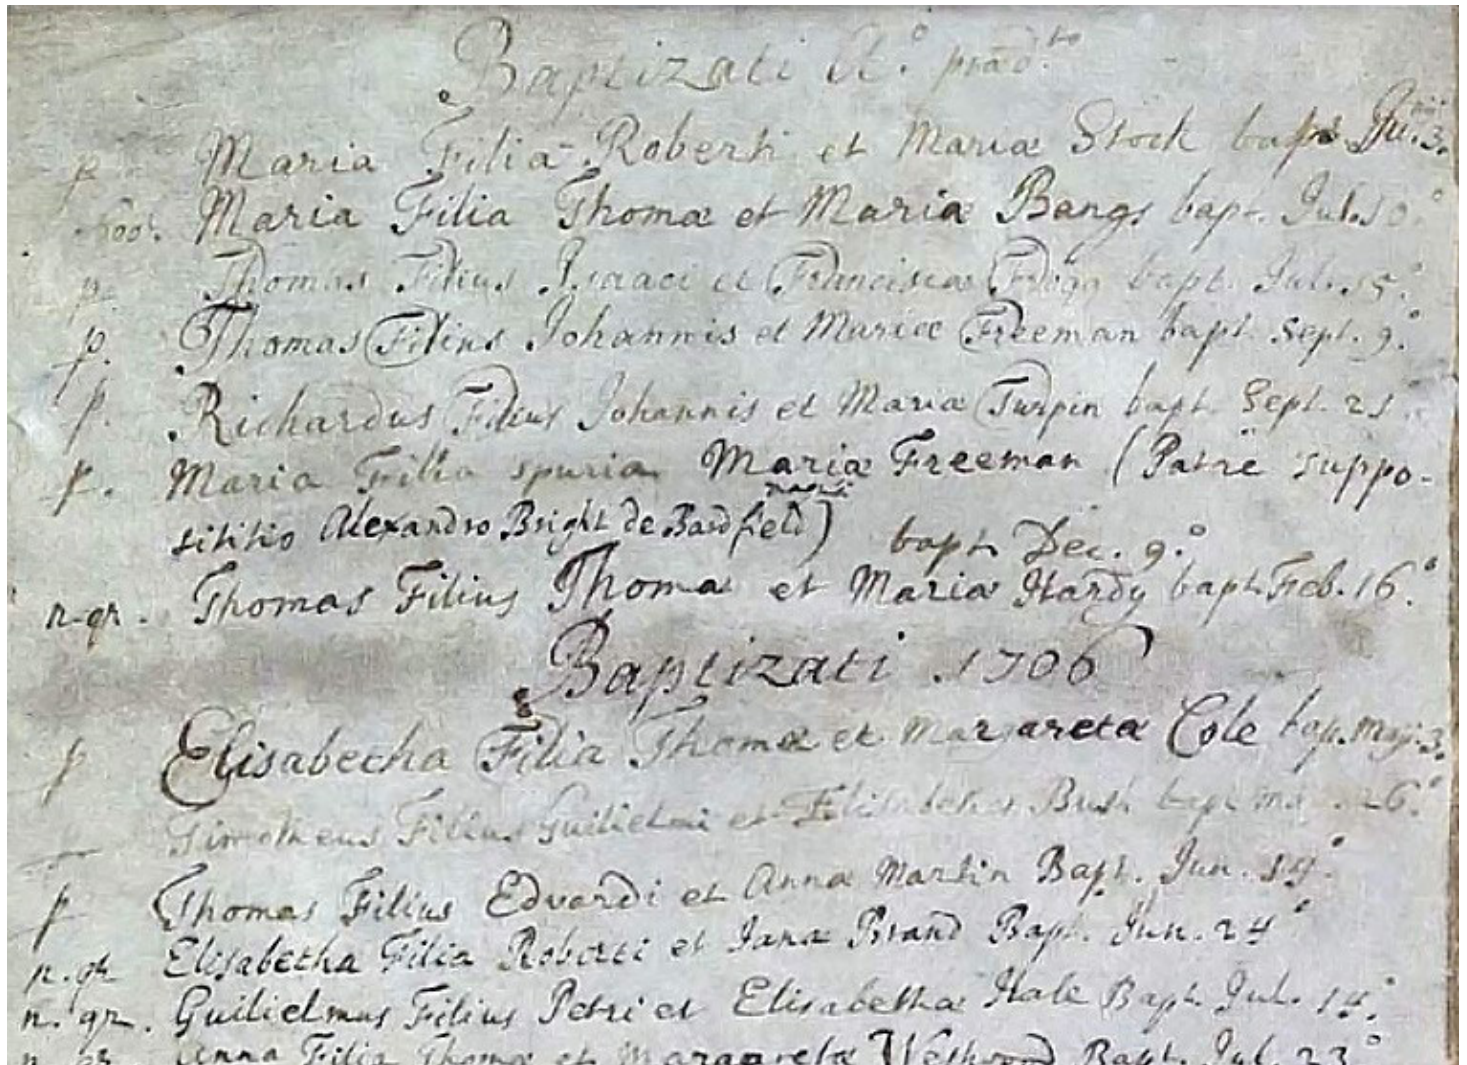 Baptizati A.° præd.to
p Maria Filia Roberti et Mariæ Stock bapt. Ju. 3.
Maria Filia Thomæ et Mariæ Bangs bapt. Jul. 10.°
p. Thomas Filius Isaaci et Franciscæ bapt. Jul. 15.°
p. Thomas Filius Johannis et Mariæ Freeman bapt. Sept. 9.°
p. Richardus Filius Johannis et Mariæ Turpin bapt. Sept. 21
p. Maria Filia spuria Mariæ Freeman (Patre suppo-
sititio Alexandro Bright de Bardfeld) bapt. Dec. 9.°
n-gr. Thomas Filius Thomæ et Mariæ Hardy bapt. Feb. 16.°
Baptizati 1706
p Elisabetha Filia Thomæ et Margaretæ Cole bap. Maji. 3.
Timotheus Filius Guilielmi et Elisabethæ Bush bapt Ma 26.°
p Thomas Filius Edvardi et Annæ Martin Bapt. Jun. 19.°
n. gr Elisabetha Filia Roberti et Janæ Brand Bapt. Jun. 24°
n. gr. Guilielmus Filius Petri et Elisabethæ Hale Bapt. Jul. 14.°
n. gr. Anna Filia Thomæ et Margaretæ Westwood Bapt. Jul. 23°